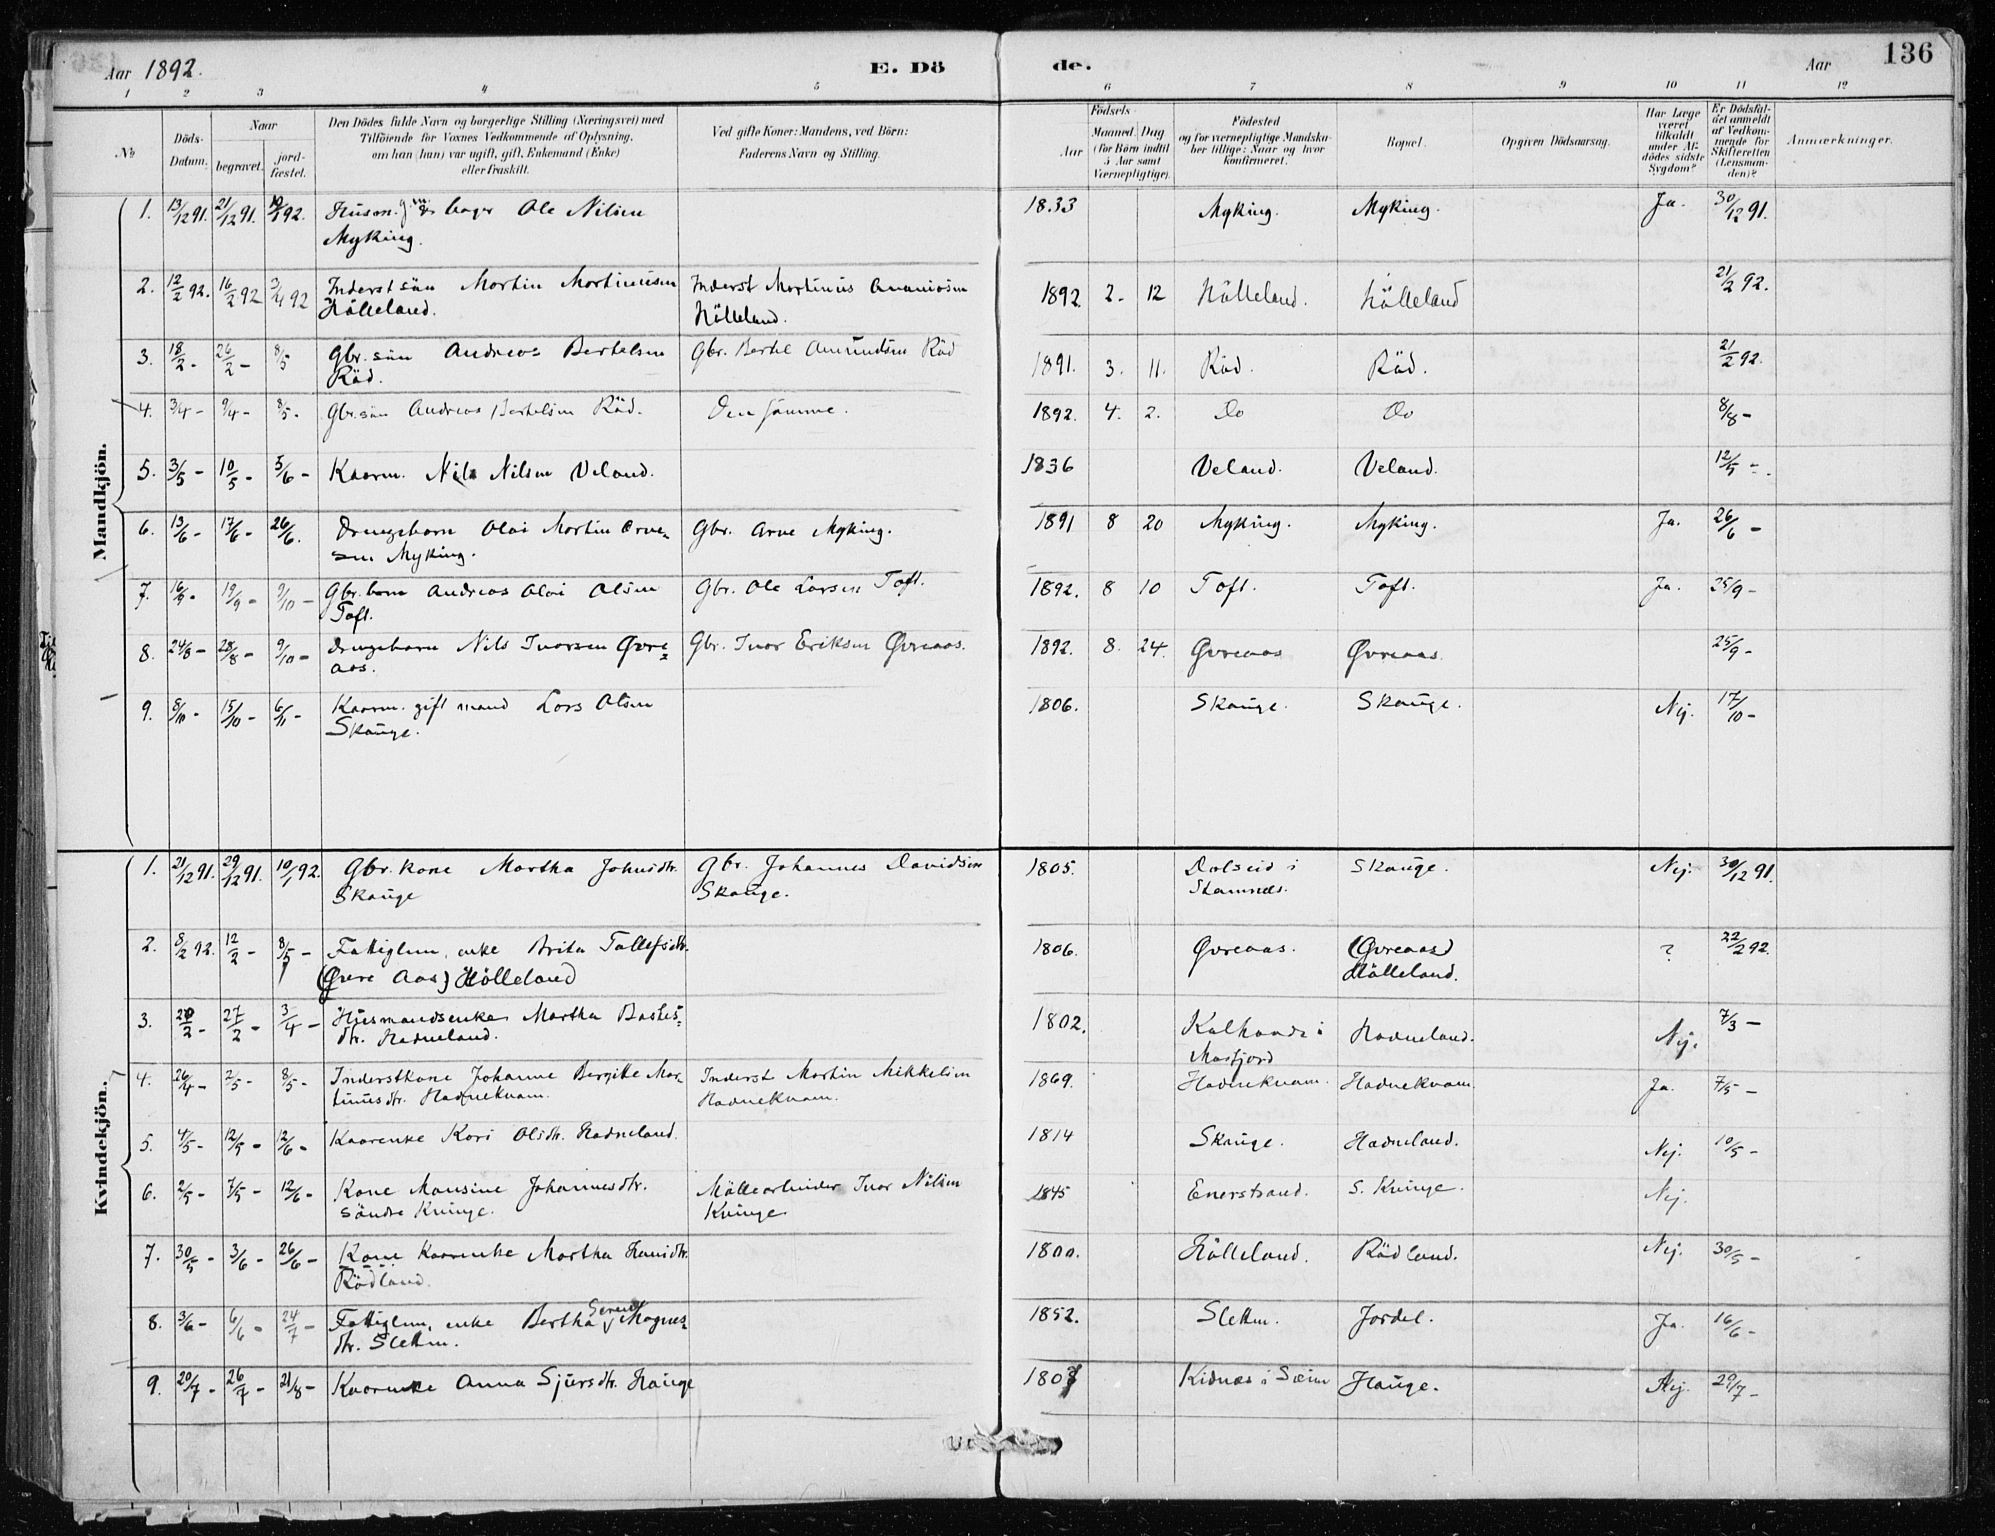 Aar 1892.
E. Dö
de.
Aar
136
1 2 3 4 5 6 7 8 9 10 11 12
No
Döds-Datum.
Naar
begravet.
jord-fæstet.
Den Dödes fulde Navn og borgerlige Stilling (Næringsvei) med
Tilföiende for Voxnes Vedkommende af Oplysning,
om han (hun) var ugift, gift, Enkemand (Enke)
eller fraskilt.
Ved gifte Koner: Mandens, ved Börn:
Faderens Navn og Stilling.
Födsels
Aar
Maaned. Dag
(for Börn indtil
5 Aar samt
Værnepligtige).
Födested
og for værnepligtige Mandska-
ber tillige: Naar og hvor
konfirmeret.
Bopæl.
Opgiven Dödsaarsag.
Har Læge
været
tilkaldt
under Af-
dödes sidste
Sygdom?
Er Dödsfal-
det anmeldt
af Vedkom-
mende for
Skifteretten
(Lensman-
den)?
Anmærkninger.
Mandkjön.
1. 13/12 91. 21/12 91. 92. Husm. bager Ole Nilsen 1833 Myking. Myking. Ja. 30/12 91.
Myking.
2. 12/2 92. 16/2 92 3/4 92 Inderstsön Martin Martinusen Inderst Martinus Ananiasen 1892 2. 12 Hölleland. Hölleland 21/2 92.
Hölleland. Hölleland.
3. 18/2 - 26/2 - 8/5 Gbr. sön Andreas Bertelsen Gbr. Bertel Amundsen Röd 1891. 3. 11. Röd. Röd. 21/2 92.
Röd.
4. 3/4 - 9/4 - 8/5 - Gbr. sön Andreas Bertelsen Röd. Den samme. 1892. 4. 2. Do Do 8/8 -
5. 3/5 - 10/5 - 5/6 - Kaarm. Nils Nilsen Veland. 1836 Veland. Veland. 12/5 -
6. 13/6 - 17/6 - 26/6. Drengebarn Olai Martin Arne- Gbr. Arne Myking. 1891 8 20 Myking. Myking. Ja. 26/6 -
sen Myking.
7. 16/9 - 19/9 - 9/10 - Gbr. barn Andreas Olai Olsen Gbr. Ole Larsen Toft. 1892. 8 10 Toft. Toft. Ja. 25/9 -
Toft.
8. 24/8 - 28/8 - 9/10 - Drengebarn Nils Ivarsen Øvre- Gbr. Ivar Eriksen Øvreaas. 1892. 8. 24. Øvreaas Øvreaas 25/9 -
aas.
9. 8/10 - 15/10 - 6/11 - Kaarm. gift mand Lars Olsen 1806. Skauge. Skauge. Nej. 17/10 -
Skauge.
Kvindekjön.
1. 21/12 91. 29/12 91. 10/1 92. Gbr. kone Martha Johnsdtr. Gbr. Johannes Davidsen 1805. Dalseid i Skauge. Nej. 30/12 91.
Skauge Skauge. Stamnes.
2. 8/2 92. 12/2 - 8/5 - Fattiglem, enke Brita Tollefsdtr. 1806. Øvreaas. (Øvreaas) ? 22/2 92.
(Øvre Aas) Hölleland Hölleland.
3. 20/2 - 27/2 - 3/4 - Husmandsenke Martha 1802. i Hadneland. Nej. 7/3 -
dtr. Hadneland. Masfjord
4. 26/4 - 2/5 - 8/5 - Inderstkone Johanne Bergitte Mar- Inderst Martin Mikkelsen 1869. Hadnekvam. Hadnekvam. Ja. 7/5 -
tinusdtr. Hadnekvam. Hadnekvam.
5. 4/5 - 12/5 - 12/6 - Kaarenke Kari Olsdtr. Hadneland. 1814 Skauge. Hadneland. Nej. 10/5 -
6. 2/5 - 7/5 - 12/6 - Kone Monsine Johannesdtr. Möllearbeider Ivar Nilsen 1845 Enerstrand. S. Kvinge. Nej.
söndre Kvinge. Kvinge
7. 30/5 - 3/6 - 26/6 - Kone Kaarenke Martha Hansdtr. 1800. Hölleland. Rödland. Nej. 30/5 -
Rödland.
8. 3/6 - 6/6 - 24/7 - Fattiglem, enke Bertha Magnes- 1852. Sletten. Jordal. Ja. 16/6 -
dtr. Sletten.
9. 20/7 - 26/7 - 21/8 - Kaarenke Anna Sjursdtr. Hauge Kidnes i Seim Hauge. Nej. 29/7 -